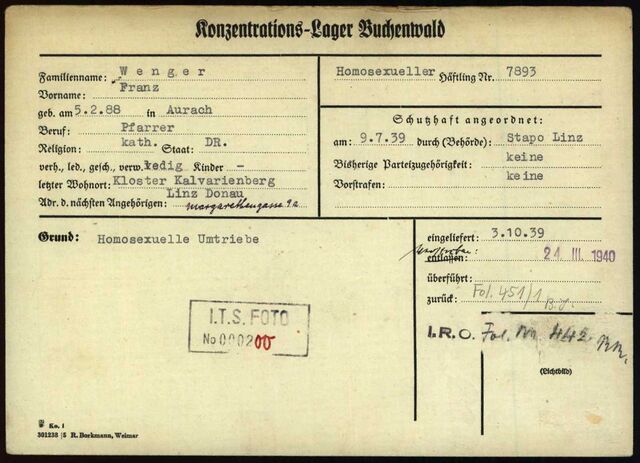 Konzentrations-Lager Buchenwald
Familienname: Wenger
Vorname: Franz
geb. am 5.2.88 in Aurach
Beruf: Pfarrer
Religion: kath. Staat: DR.
verh., led., gesch., verw. ledig Kinder -
letzter Wohnort: Kloster Kalvarienberg
Linz Donau
Adr. d. nächsten Angehörigen: Margarethengasse 9a
Homosexueller Häftling Nr. 7893
Schutzhaft angeordnet:
am: 9.7.39 durch (Behörde): Stapo Linz
Bisherige Parteizugehörigkeit: keine
Vorstrafen: keine
Grund: Homosexuelle Umtriebe
eingeliefert: 3.10.39
entlassen: 24. III. 1940
überführt:
zurück: Fol. 451/1
I.R.O. Fol. No 442
(Lichtbild)
I.T.S. FOTO
No 000200
Ko. I
301238 / 5 R. Borkmann, Weimar